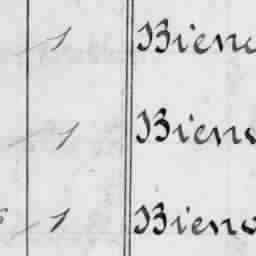 1 Bien
1 Bien
1 Bien